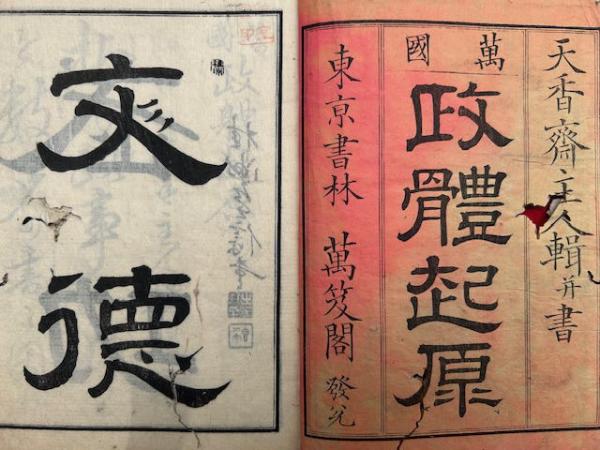 天香齋主人輯并書
萬國
政體起原
東京書林 萬笈閣 發兌
彣德